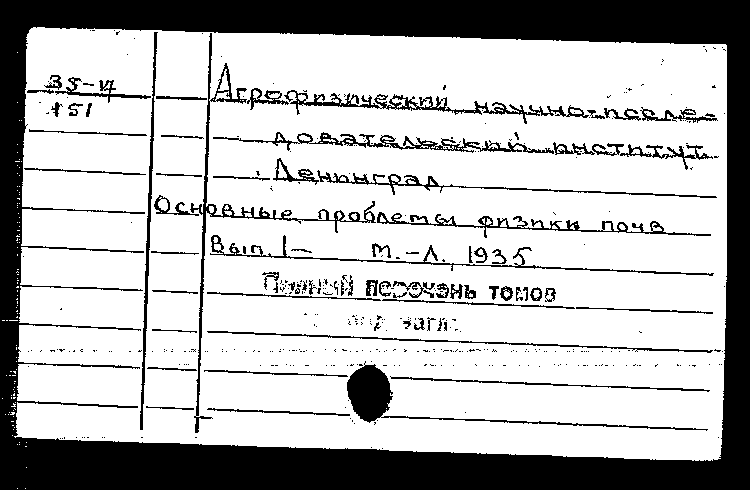 Агрофизический научно-иссле-
довательский институт.
Ленинград.
Основные проблемы физики почв
Вып. 1— М.-Л., 1935
Полный перечень томов
загл.